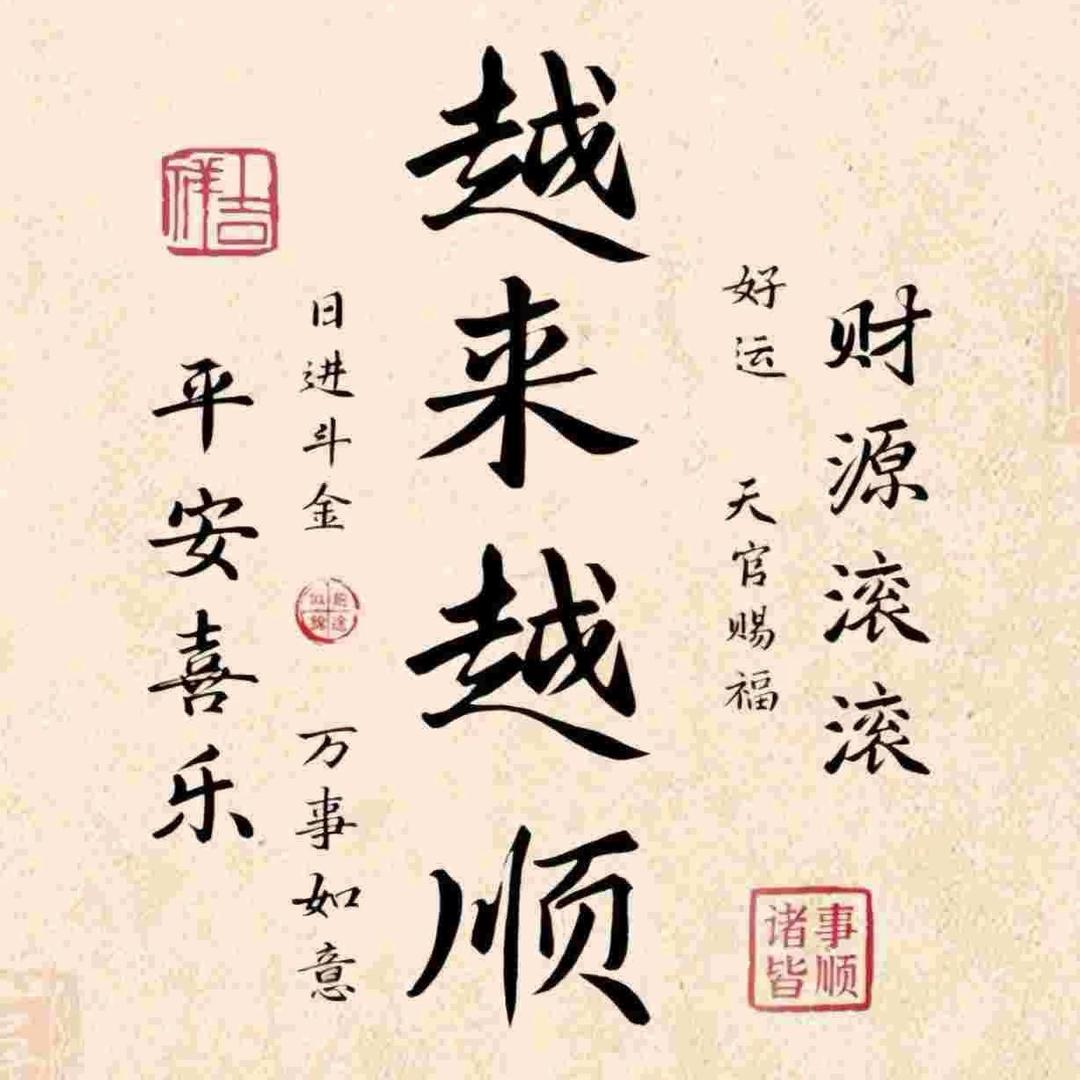 财源滚滚
好运 天官赐福
越来越顺
日进斗金 万事如意
平安喜乐
诸事
皆顺